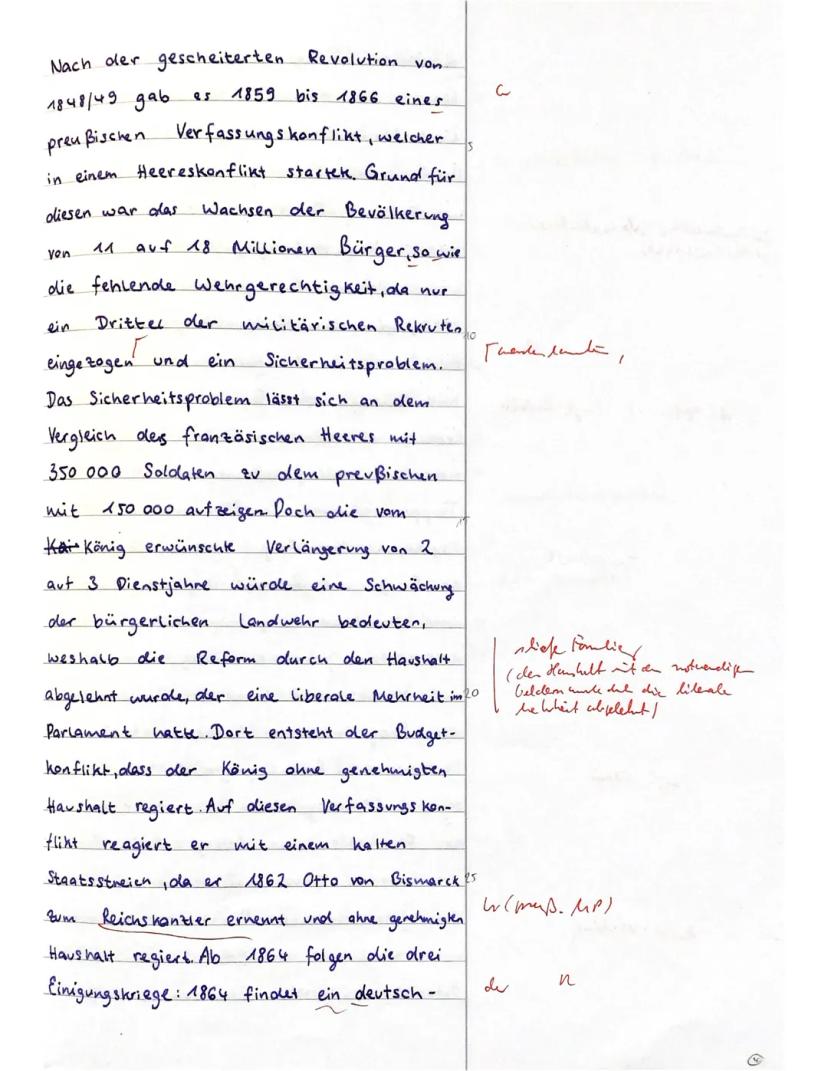 Nach der gescheiterten Revolution von
1848/49 gab es 1859 bis 1866 eines
G
preußischen Verfassungskonflikt, welcher
5
in einem Heereskonflikt startete. Grund für
diesen war das Wachsen der Bevölkerung
von 11 auf 18 Millionen Bürger, so wie
die fehlende Wehrgerechtigkeit, da nur
ein Drittel der militärischen Rekruten
10
eingezogen und ein Sicherheitsproblem.
werden konnten,
Das Sicherheitsproblem lässt sich an dem
Vergleich des französischen Heeres mit
350 000 Soldaten zu dem preußischen
mit 150 000 aufzeigen. Doch die vom
15
König erwünschte Verlängerung von 2
auf 3 Dienstjahre würde eine Schwächung
der bürgerlichen Landwehr bedeuten,
weshalb die Reform durch den Haushalt
abgelehnt wurde, der eine liberale Mehrheit im
20
Parlament hatte. Dort entsteht der Budget-
konflikt, dass der König ohne genehmigten
Haushalt regiert. Auf diesen Verfassungskon-
flikt reagiert er mit einem kalten
Staatsstreich, da er 1862 Otto von Bismarck
25
zum Reichskanzler ernennt und ohne genehmigten
Haushalt regiert. Ab 1864 folgen die drei
Einigungskriege: 1864 findet ein deutsch-
schiefe Formulierung
(den Haushalt mit den notwendigen
Geldern wurde die liberale
Mehrheit abgelehnt)
(preuß. MP)
der
n